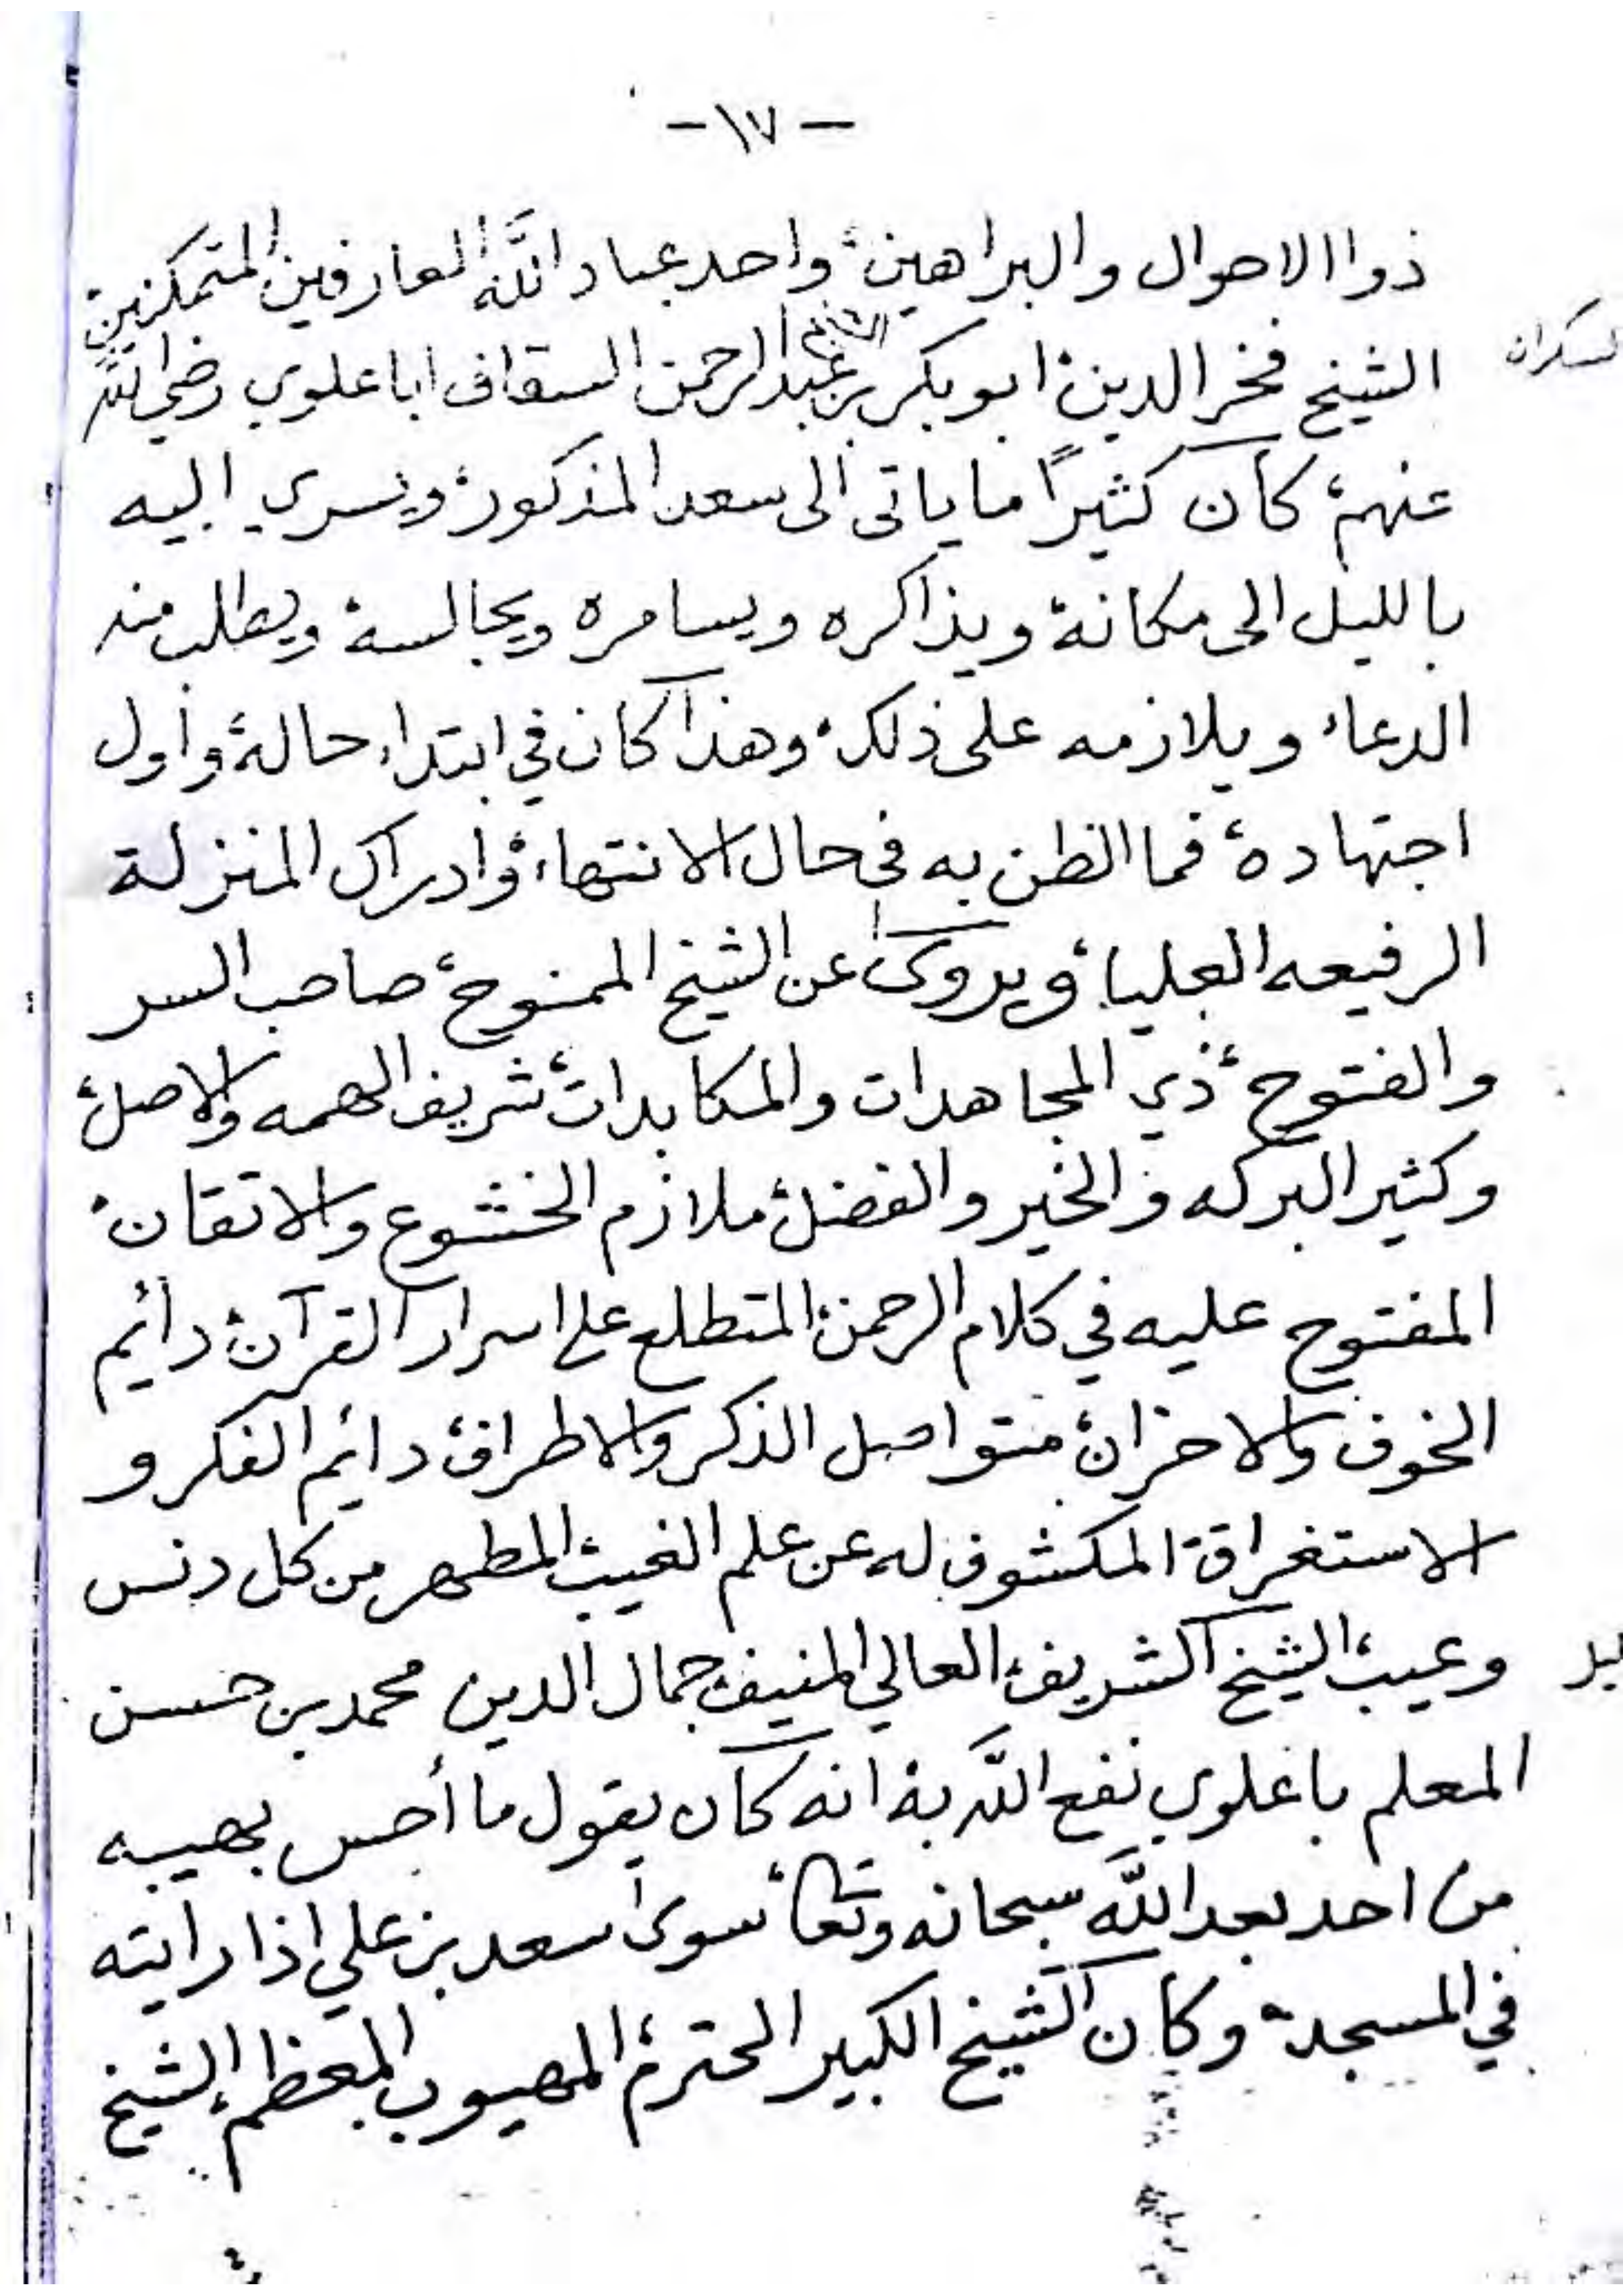 - ١٧ -
ذوا الاحوال والبراهين، واحد عباد اللَّه العارفين المتمكنين
الشيخ فخر الدين ابو بكر بن الشيخ عبد الرحمن السقاف اباعلوي رضي اللَّه
السكران
عنهم، كان كثيرًا ما ياتى الى سعد المذكور، ويسري اليه
بالليل الى مكانة ويذاكره ويسامره ويجالسة، ويطلب منه
الدعاء ويلازمه على ذلك، وهذا كان في ابتداء حالة، وأول
اجتهاده، فما الظن به فى حال الانتهاء، وادراك المنزلة
الرفيعه العلياء، ويروى عن الشيخ الممنوح، صاحب السر
والفتوح، ذي المجاهدات والمكابدات، شريف الهمه والاصل،
وكثير البركه والخير والفضل، ملازم الخشوع والاتقان،
المفتوح عليه في كلام الرحمن، المتطلع على اسرار القرآن، دائم
الخوف والاحزان، متواصل الذكر والاطراف، دائم الفكر و
الاستغراق، المكشوف له عن علم الغيب، المطهر من كل دنس
وعيب، الشيخ الشريف، العالي المنيف، جمال الدين محمد بن حسن
المعلم باعلوي نفع اللَّه بة، انه كان يقول ما أحس بهيبه
من احد بعد اللَّه سبحانه وتعالى، سوى سعد بن علي اذا رايته
في المسجد، وكان الشيخ الكبير المحترم، المهيوب المعظم، الشيخ